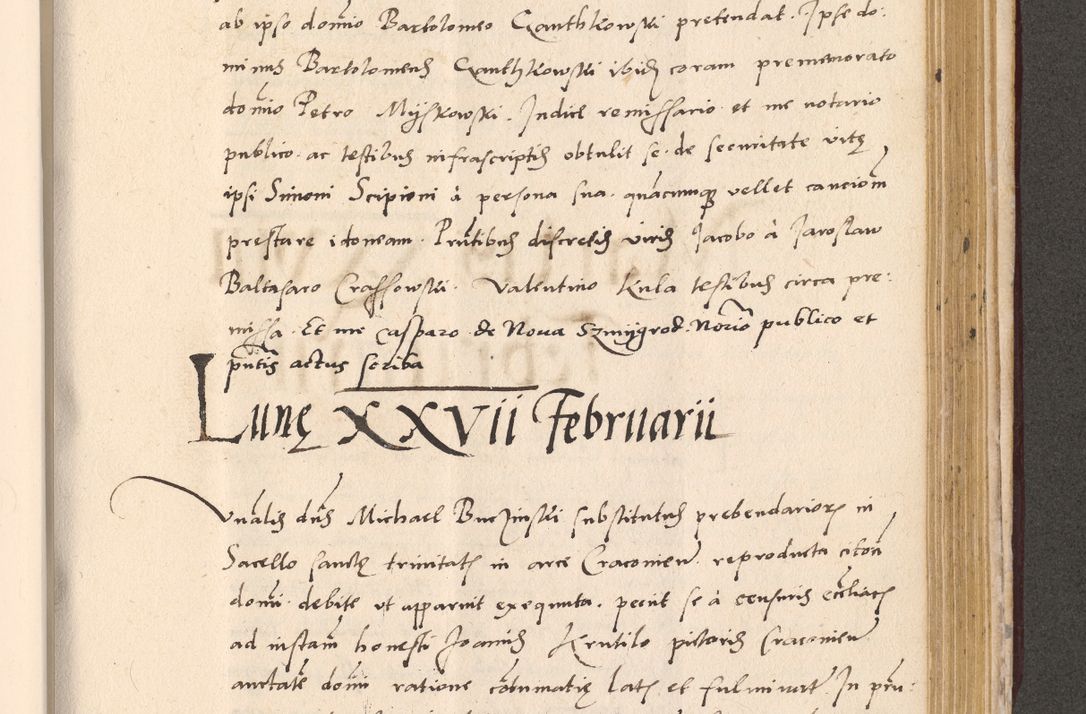 ab ipso domĩo Bartolomeo Czanthkowski pretendat. Ipse do:
minus Bartolomeus Czanthkowski ibidem coram prememorato
domĩo Petro Myskowski. Iudice remissario et me notario
publico ac testibus infrascriptis obtulit se de securitate vitę
ipsi Simoni Scipioni à persona sua quãcumque vellet caucionẽ
prestare idoneam. Pñtibus discretis viris Jacobo à Jaroslaw
Baltasaro Crassowski. Valentino Kula testibus circa pre:
missa. Et me Casparo de Nova Szmygrod Norio publico et
pñtis actus scriba
Lunę XXVII Februarii
Vñalis dñs Michael Buczinski substitutus prebendariorum in
Sacello sanctę trinitatis in arce Cracovien reproducta citaõn
domĩ debite ut apparuit exequuta. peciit se à censuris ecclĩacis
ad instañ honesti Joannis Krutilo pictoris Cracovien
auctatẽ domĩ ratione cõtumatię latis et fulminatis In pñ: